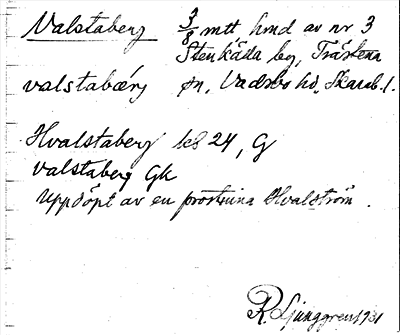 Valstaberg 3/8 mtt hmd av nr 3
Stenkälla by, Trästena
valstabærj sn, Vadsbo hd, Skarab. l.
Hvalstaberg lk8 24, G
Valstaberg Gk
Uppdöpt av en prostinna Hvalström.
R. Ljunggren 1931